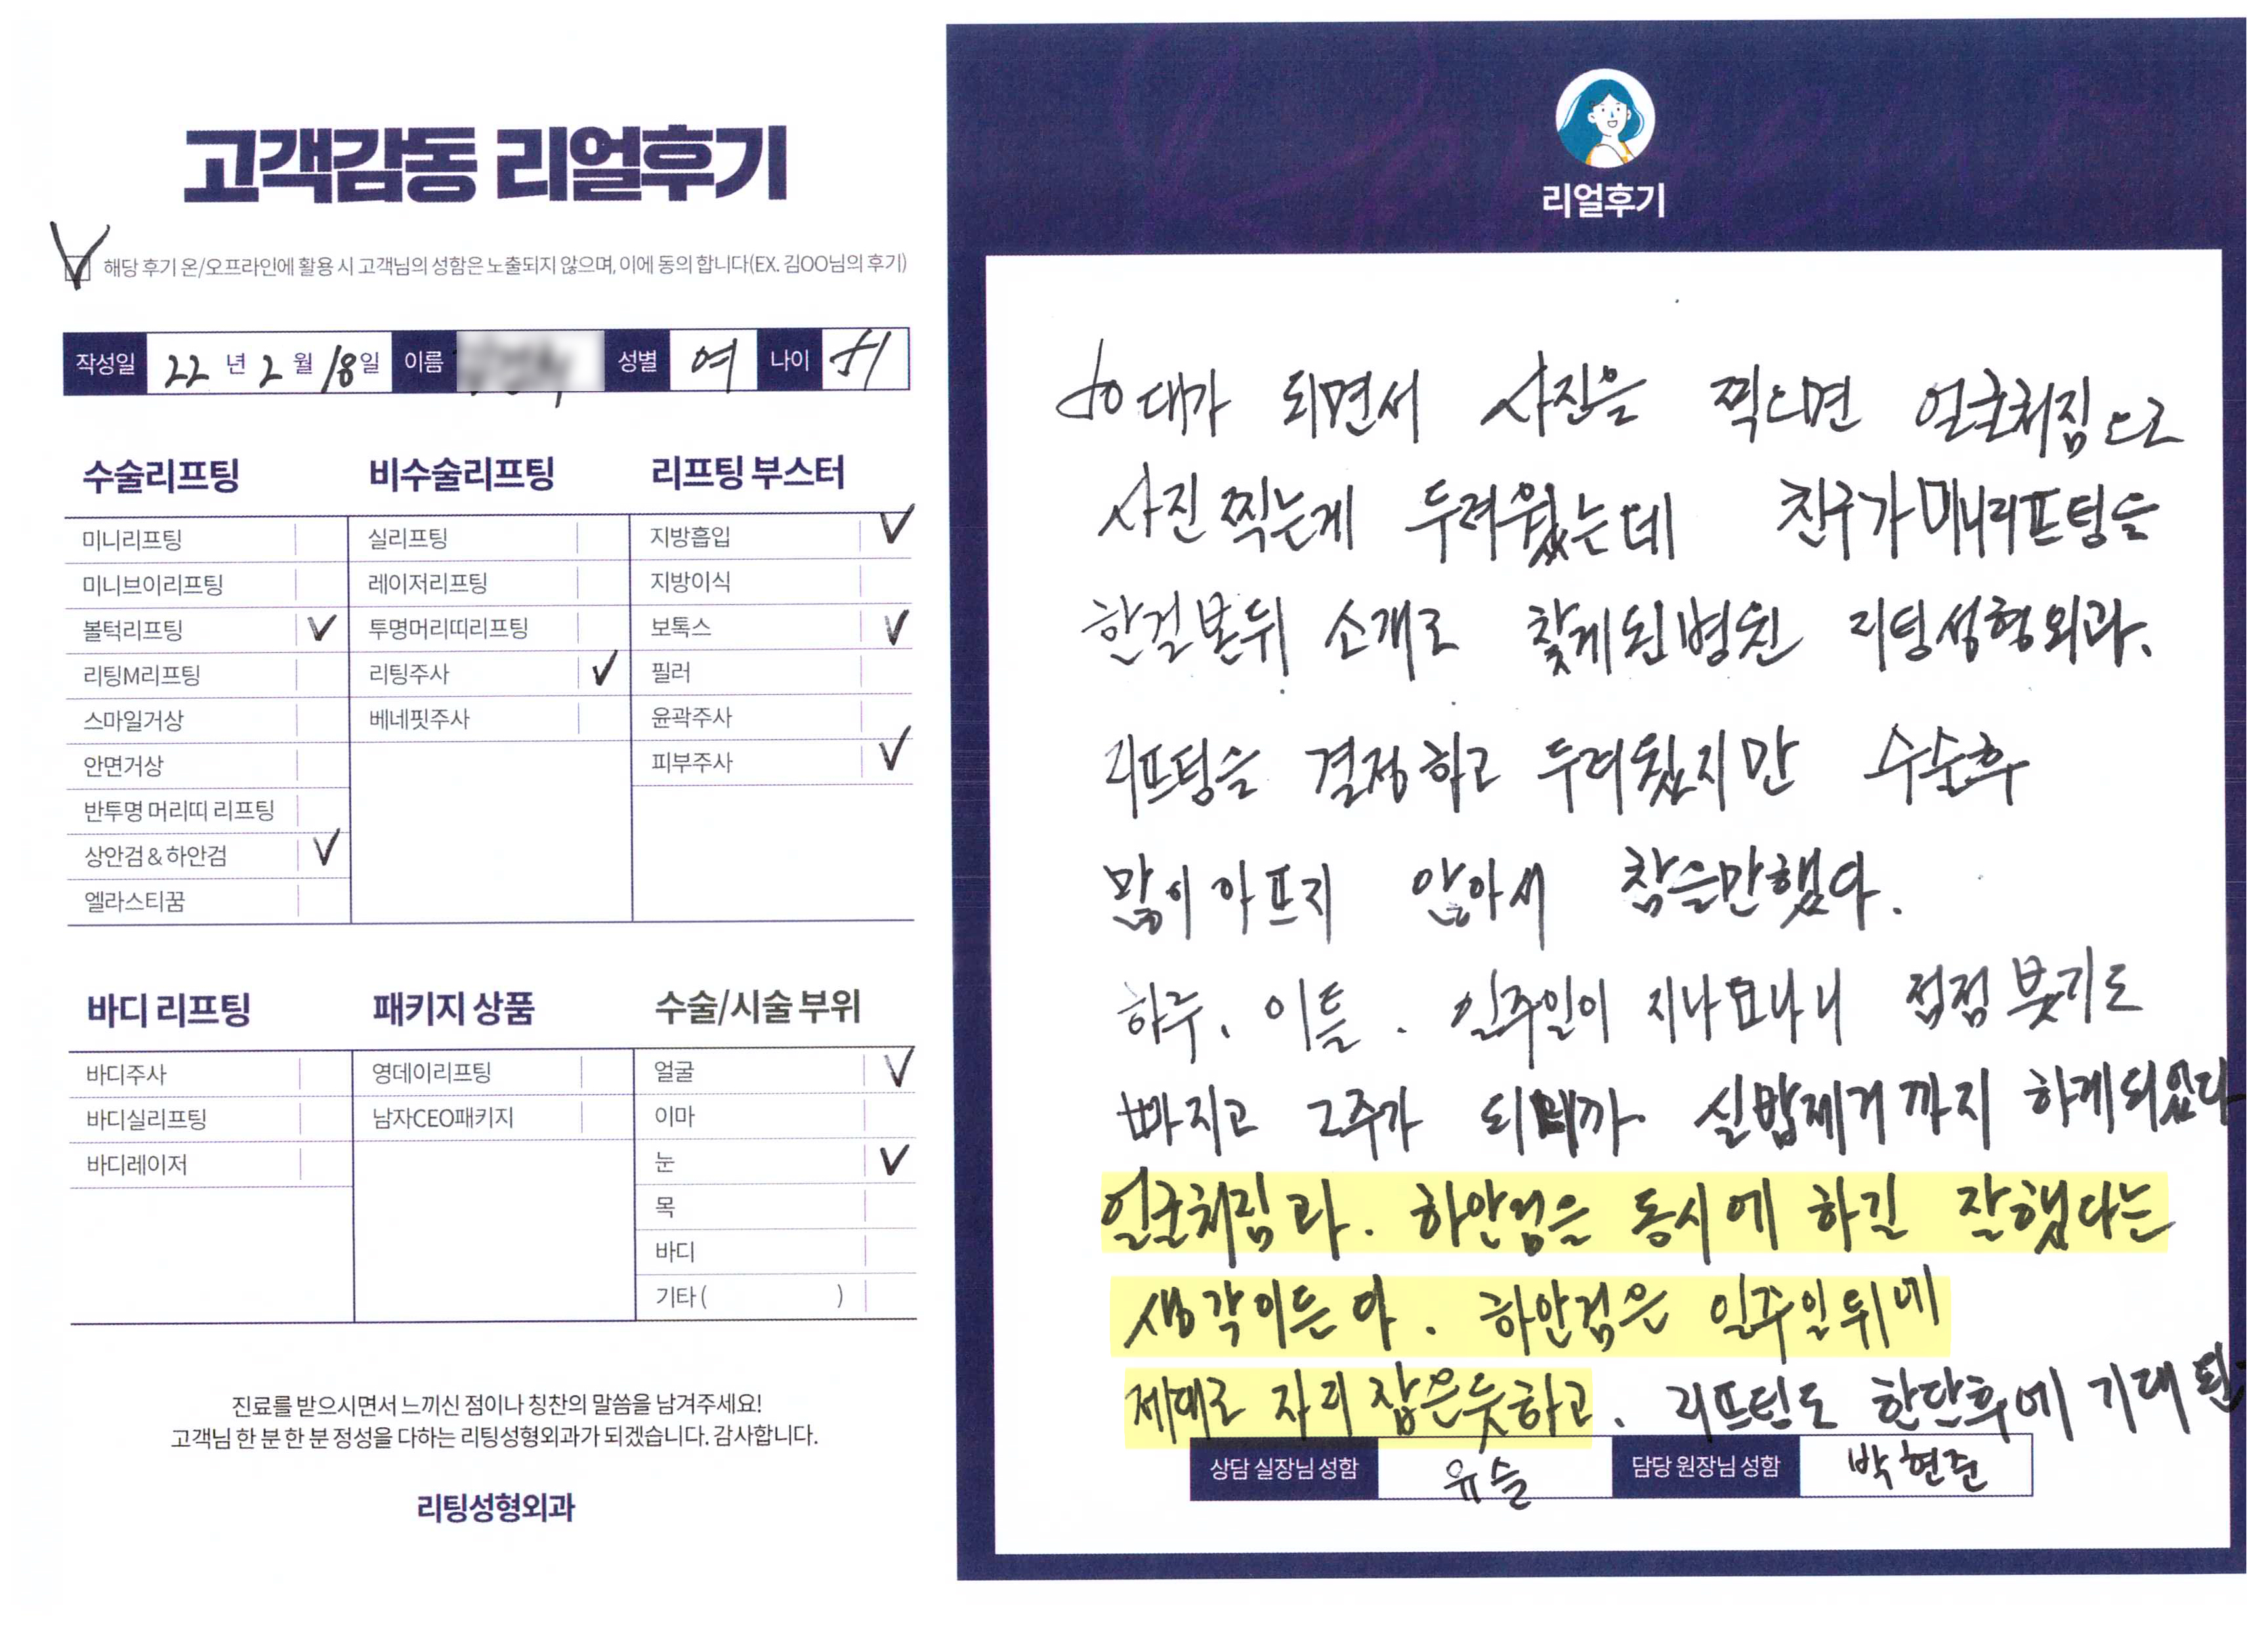 고객감동 리얼후기
해당 후기 온/오프라인에 활용 시 고객님의 성함은 노출되지 않으며, 이에 동의 합니다(EX. 김OO님의 후기)
작성일 22 년 2 월 18 일 이름 성별 여 나이 51
수술리프팅
미니리프팅
미니브이리프팅
볼턱리프팅
리팅M리프팅
스마일거상
안면거상
반투명 머리띠 리프팅
상안검 & 하안검
엘라스티꿈
비수술리프팅
실리프팅
레이저리프팅
투명머리띠리프팅
리팅주사
베네핏주사
리프팅 부스터
지방흡입
지방이식
보톡스
필러
윤곽주사
피부주사
바디 리프팅
바디주사
바디실리프팅
바디레이저
패키지 상품
영데이리프팅
남자CEO패키지
수술/시술 부위
얼굴
이마
눈
목
바디
기타 ( )
진료를 받으시면서 느끼신 점이나 칭찬의 말씀을 남겨주세요!
고객님 한 분 한 분 정성을 다하는 리팅성형외과가 되겠습니다. 감사합니다.
리팅성형외과
리얼후기
50대가 되면서 사진을 찍으면 얼굴처짐으로
사진 찍는게 두려웠는데 친구가 미니리프팅을
한걸 본뒤 소개로 찾게된 병원 리팅성형외과.
리프팅을 결정하고 두려웠지만 수술후
많이 아프지 않아서 참을만했다.
하루, 이틀. 일주일이 지나고나니 점점 붓기도
빠지고 2주가 되니까 실밥제거까지 하게되었다
얼굴처짐과. 하안검을 동시에 하길 잘했다는
생각이든다. 하안검은 일주일뒤에
제대로 자리 잡은듯하고. 리프팅도 한달후에 기대된
상담 실장님 성함 유슬 담당 원장님 성함 박현준